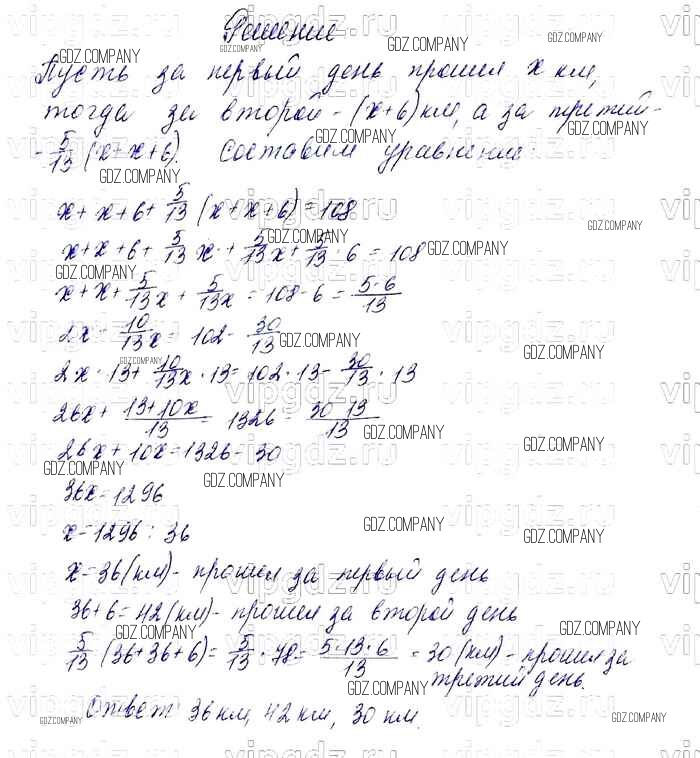 Решение
Пусть за первый день прошел x км,
тогда за второй - (x+6) км, а за третий -
- 5/13 (x+x+6). Составим уравнение:
x + x + 6 + 5/13 (x+x+6) = 108
x + x + 6 + 5/13 x + 5/13 x + 5/13 · 6 = 108
x + x + 5/13 x + 5/13 x = 108 - 6 = 5·6/13
2x - 10/13 x = 102 - 30/13
2x · 13 + 10/13 x · 13 = 102 · 13 - 30/13 · 13
26x + 13+10x/13 = 1326 - 30 13/13
26x + 10x = 1326 - 30
36x = 1296
x = 1296 : 36
x = 36 (км) - прошел за первый день
36+6 = 42 (км) - прошел за второй день
5/13 (36+36+6) = 5/13 · 78 = 5·13·6/13 = 30 (км) - прошел за
третий день.
Ответ: 36 км, 42 км, 30 км.
GDZ.COMPANY
vipgdz.ru